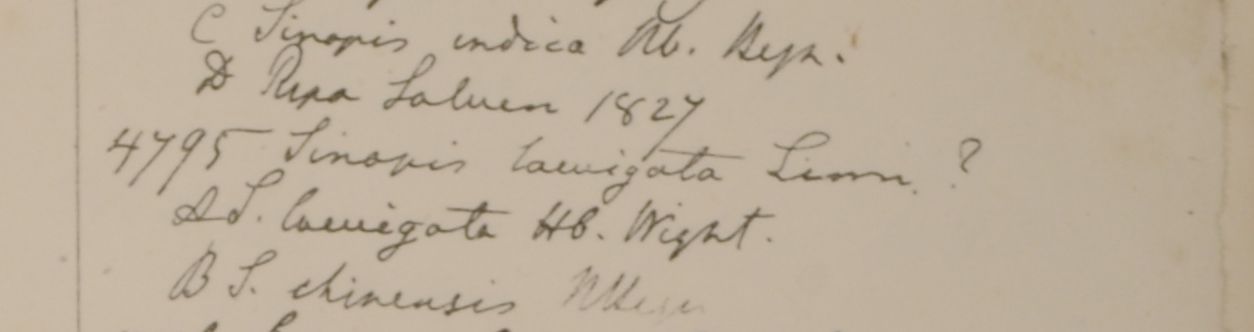 C Sinapis indica Hb. Heyn.
D Ripa Saluen 1827
4795 Sinapis laevigata Linn. ?
A S. laevigata Hb. Wight.
B S. chinensis